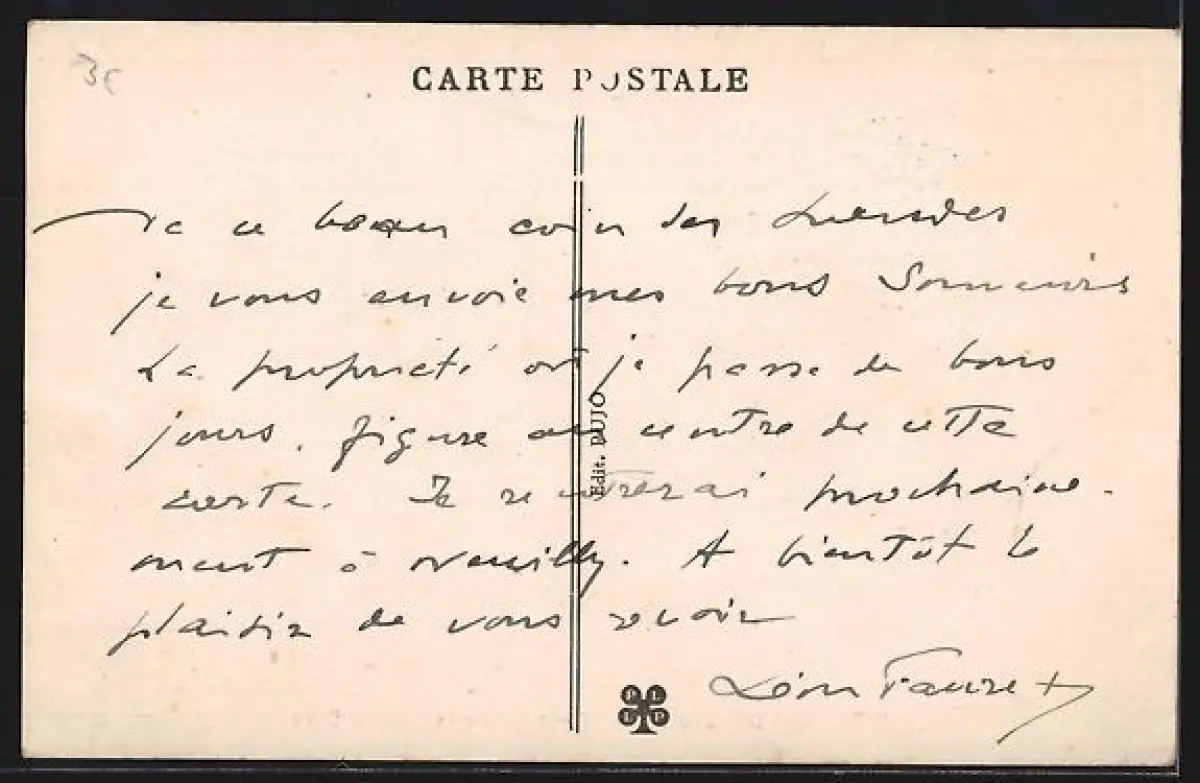 3€
CARTE POSTALE
De ce beau coin des Landes
je vous envoie mes bons Souvenirs
La propriété où je passe de bons
jours, figure au centre de cette
carte. Je rentrerai prochaine-
ment à Neuilly. A bientôt le
plaisir de vous revoir
Léon Fauret
Edit. PUJO